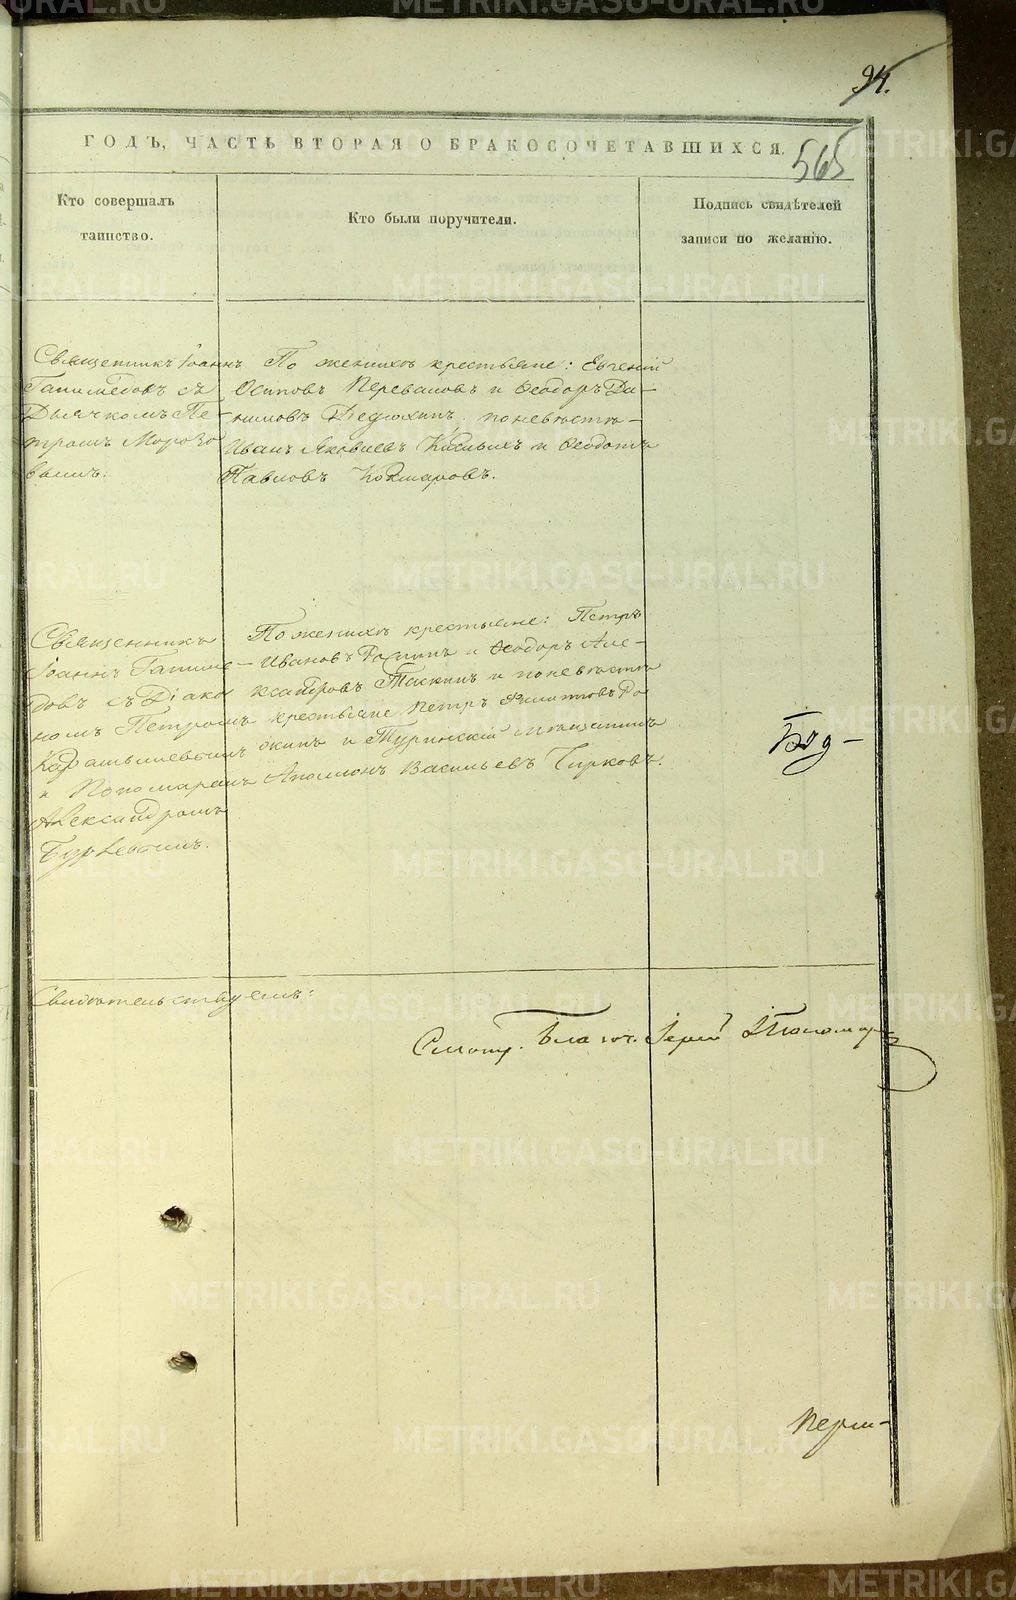 94.
565
ГОДЪ, ЧАСТЬ ВТОРАЯ О БРАКОСОЧЕТАВШИХСЯ.
Кто совершалъ
таинство.
Кто были поручители.
Подпись свидѣтелей
записи по желанію.
Священникъ Іоаннъ
Ганимедовъ съ
Дьячкомъ Пе-
тромъ Морозо
вымъ.
По женихѣ крестьяне: Евгеній
Осиповъ Переваловъ и Ѳеодоръ Да-
ниловъ по невѣстѣ-
Иванъ Яковлевъ и Ѳеодотъ
Павловъ
Священникъ
Іоаннъ Ганиме-
довъ съ Діако
номъ Петромъ
и Пономаремъ
Александромъ
По женихѣ крестьяне: Петръ
Ивановъ и Ѳеодоръ Але-
ксандровъ Таскинъ и по невѣстѣ
крестьяне Петръ Филиповъ
и Туринскій мѣщанинъ
Аполлонъ Васильевъ Чирковъ.
Свидѣтельствуемъ:
Смотр. Благоч. Іерей
METRIKI.GASO-URAL.RU